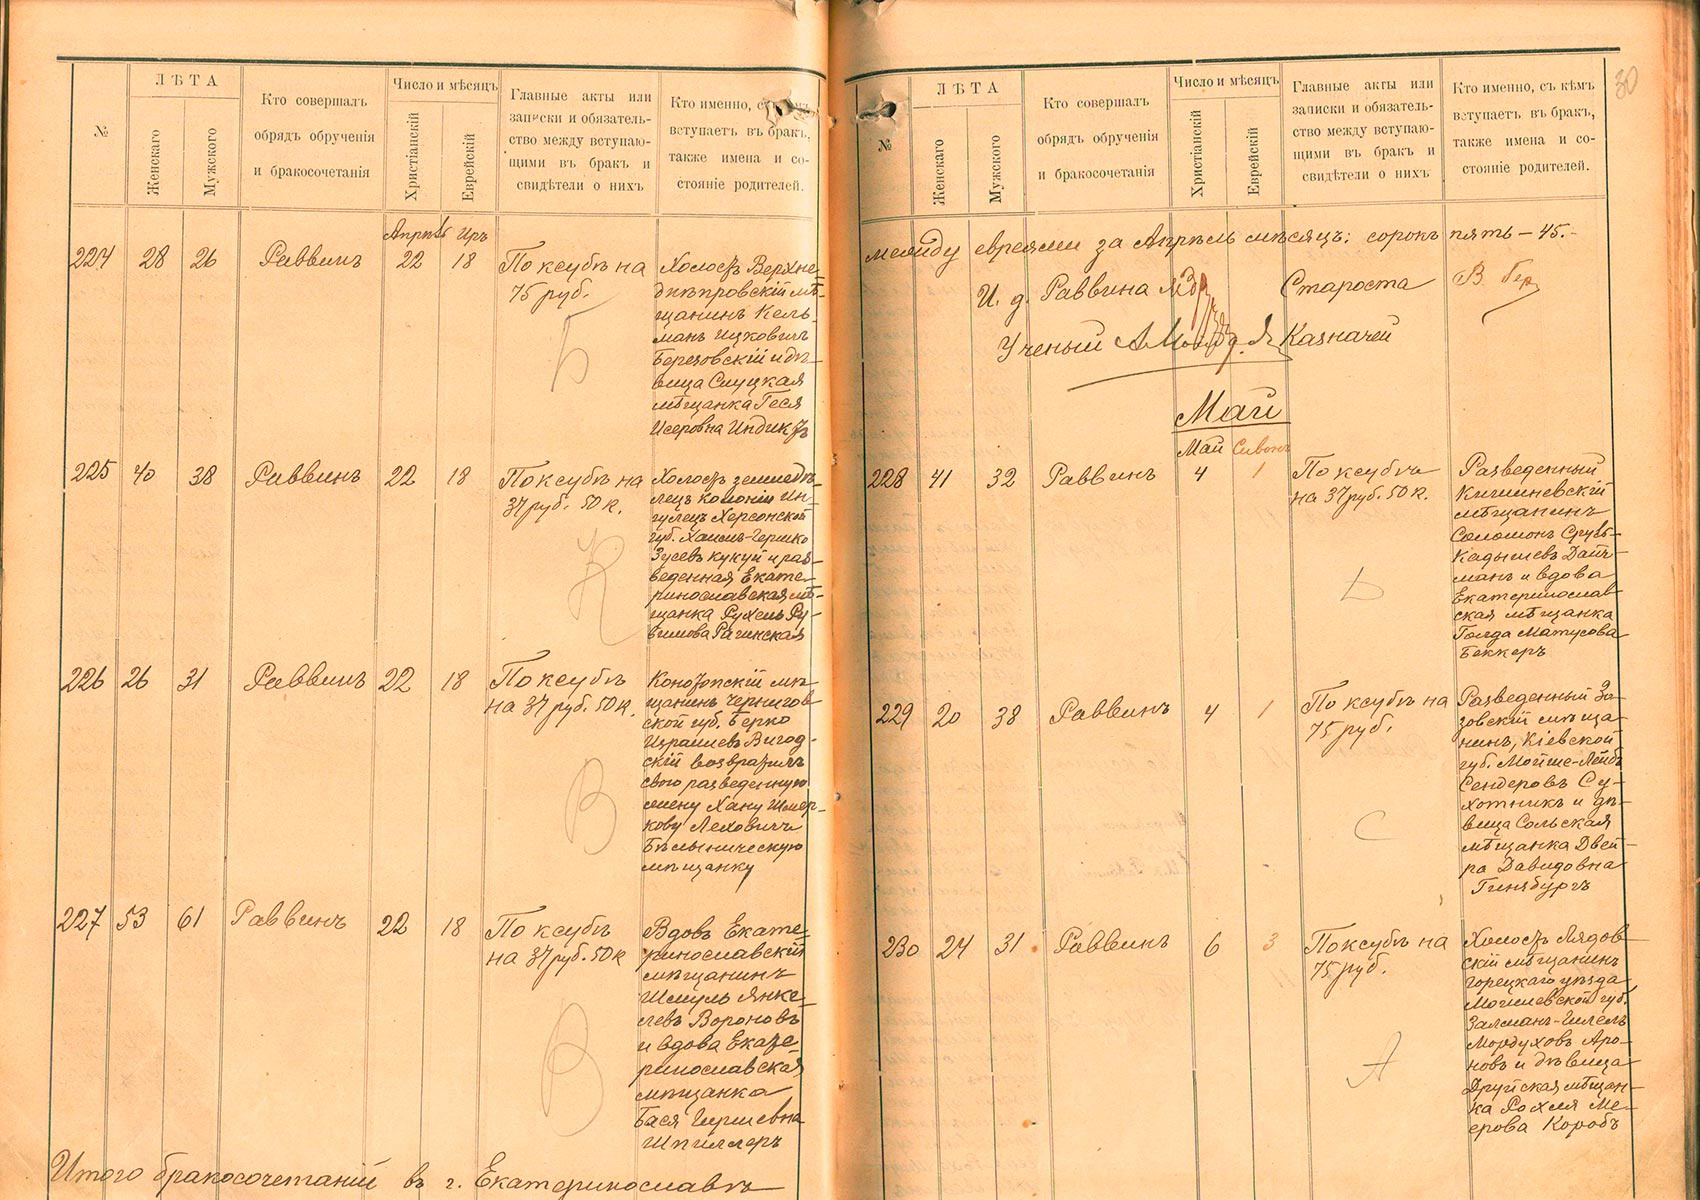 №
ЛѢТА
Женскаго
Мужского
Кто совершалъ
обрядъ обрученія
и бракосочетанія
Число и мѣсяцъ
Христіанскій
Еврейскій
Главные акты или
записки и обязатель-
ство между вступаю-
щими въ бракъ и
свидѣтели о нихъ
Кто именно, съ кѣмъ
вступаетъ въ бракъ,
также имена и со-
стояніе родителей.
Апрѣль Иръ
224 28 26 Раввинъ 22 18
По ксубѣ на
75 руб.
Б
Холостъ Верхне-
днѣпровскій мѣ-
щанинъ Кель-
манъ Ицковичъ
Березовскій и дѣ-
вица Слуцкая
мѣщанка Геся
Исеровна Индикъ
225 40 38 Раввинъ 22 18
По ксубѣ на
37 руб. 50 к.
К
Холостъ земледѣ-
лецъ колоніи Ин-
гулецъ Херсонской
губ. Хаимъ-Гершко
Зусевъ Кукуй и раз-
веденная Екате-
ринославская мѣ-
щанка Рухель Ру-
вимова Рагинская
226 26 31 Раввинъ 22 18
По ксубѣ
на 37 руб. 50 к.
В
Конотопскій мѣ-
щанинъ Чернигов-
ской губ. Берко
Израилевъ Вигод-
скій возвратилъ
свою разведенную
жену Хану Шмер-
кову Леховичъ
Бѣлыническую
мѣщанку
227 53 61 Раввинъ 22 18
По ксубѣ
на 37 руб. 50 к
В
Вдовъ Екате-
ринославскій
мѣщанинъ
Шмуль Янке-
левъ Вороновъ
и вдова Екате-
ринославская
мѣщанка
Бася Гиршевна
Шпиллеръ
Итого бракосочетаній въ г. Екатеринославѣ
30
№
ЛѢТА
Женскаго
Мужского
Кто совершалъ
обрядъ обрученія
и бракосочетанія
Число и мѣсяцъ
Христіанскій
Еврейскій
Главные акты или
записки и обязатель-
ство между вступаю-
щими въ бракъ и
свидѣтели о нихъ
Кто именно, съ кѣмъ
вступаетъ въ бракъ,
также имена и со-
стояніе родителей.
между евреями за Апрѣль мѣсяцъ: сорокъ пять – 45. –
И. д. Раввина Староста
Ученый Казначей
Май
Май Сивонъ
228 41 32 Раввинъ 4 1
По ксубѣ
на 37 руб. 50 к.
Д
Разведенный
Кишиневскій
мѣщанинъ
Соломонъ Сруль-
Кадышевъ Дайч-
манъ и вдова
Екатеринослав-
ская мѣщанка
Голда Матусова
Беккеръ
229 20 38 Раввинъ 4 1
По ксубѣ на
75 руб.
С
Разведенный За-
зовскій мѣща-
нинъ, Кіевской
губ. Мойше-Лейбъ
Сендеровъ Су-
хотникъ и дѣ-
вица Сольская
мѣщанка Двей-
ра Давидовна
Гинзбургъ
230 24 31 Раввинъ 6 3
По ксубѣ на
75 руб.
А
Холостъ Лядов-
скій мѣщанинъ
Горецкаго уѣзда
Могилевской губ.
Залманъ-Гилель
Мордуховъ Аро-
новъ и дѣвица
Друйская мѣщан-
ка Рохля Ме-
ерова Коробъ